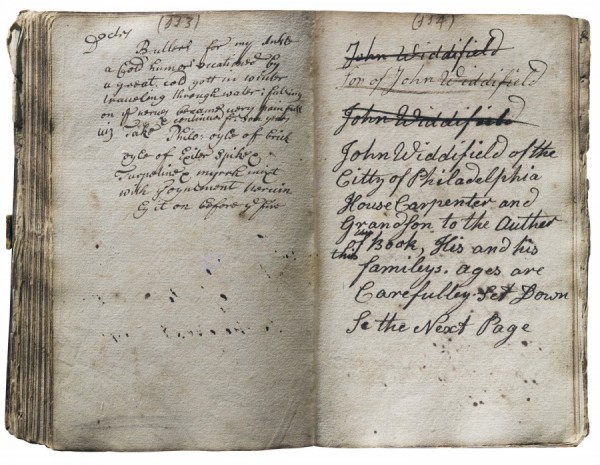 (113)
Butlers for my Ankle
a Cold humer ocationed by
a great cold gott in winter
traveling through water: falling
on nerves became very painfull
continued years
viz Take Philo: oyle of brick
oyle of Exiter Spike
mixt
with
on before ye fire
(114)
John Widdifield
Son of John Widdifield
John Widdifield
John Widdifield of the
Citty of Philadelphia
House Carpenter and
Grandson to the Auther
of this Book, His and his
famileys. ages are
Carefulley Set Down
Se the Next Page